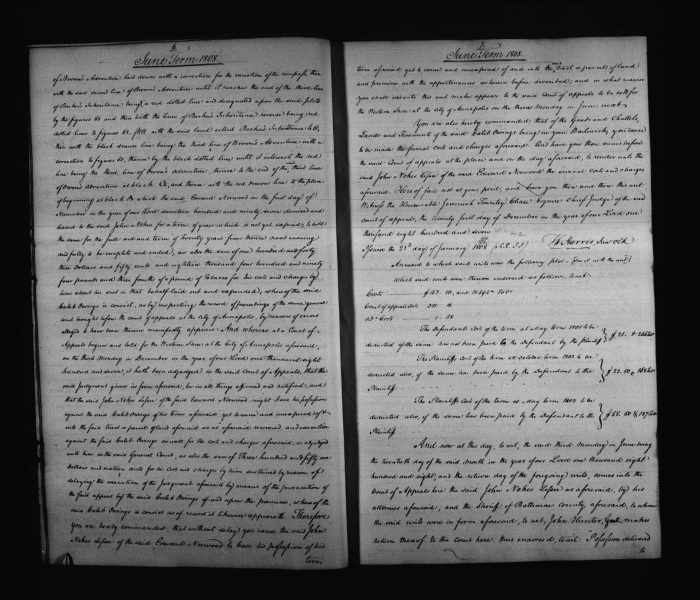 June Term 1808.
of Brown's Adventure laid down with a correction for the variation of the compass, then
with the said second line of Brown's Adventure until it reaches the end of the third line
of Parkers Inheritance being a red dotted line and designated upon the said plats
by the figures 63 and then with the lines of Parkers Inheritance reverse being red
dotted lines to figure 63, still with the said land called Parkers Inheritance to 61,
then with the black drawn line being the third line of Brown's Adventure with a
correction to figure 60, thence by the black dotted line until it intersects the red
line being the third line of Brown's adventure, thence to the end of the third line
of Brown's adventure at black and thence with the red line to the place
of beginning at black the which the said Edward Norwood on the first day of
November in the year of our Lord seventeen hundred and ninety seven demised and
leased to the said John Nokes for a term of years which is not yet expired; to hold
the same for the full end and term of Twenty years from thence next ensuing
and fully to be complete and ended; as also the sum of one hundred and forty
three dollars and fifty cents and eighteen thousand four hundred and ninety
four pounds and three fourths of a pound of Tobacco for his costs and charges by
him about his suit in that behalf laid out and expended, whereof the said
Caleb Owings is convict, as by inspecting the record of proceedings of the same general
court brought before the court of appeals at the city of Annapolis, by reason of error
alleged to have been therein manifestly appears: And whereas at a Court of
Appeals begun and held for the Western Shore at the City of Annapolis aforesaid,
on the third Monday in December in the year of our Lord one thousand eight
hundred and seven, it hath been adjudged in the said Court of Appeals, that the
said judgment given in form aforesaid, be in all things affirmed and ratified; and
that the said John Nokes lessee of the said Edward Norwood, might have his possession
against the said Caleb Owings of his term aforesaid yet to come and unexpired of &
into the said tract or parcel of land aforesaid so as aforesaid recovered, and execution
against the said Caleb Owings as well for the costs and charges aforesaid, so adjudged
unto him in the said General Court, as also the sum of Three hundred and fifty one
dollars and sixteen cents for his costs and charges by him sustained by reason of
delaying the execution of the judgment aforesaid by means of the prosecution of
the said appeal by the said Caleb Owings of and upon the premises, whereof the
said Caleb Owings is convict as of record it likewise appeareth. Therefore
you are hereby commanded, that without delay you cause the said John
Nokes lessee of the said Edward Norwood to have his possession of his
term
June Term 1808.
term aforesaid yet to come and unexpired of and into the tract or parcel of land
and premises with the appurtenances as herein before described; and in what manner
you shall execute this writ make appear to the said Court of appeals to be held for
the Western Shore at the City of Annapolis on the second Monday in June next.
You are also hereby commanded that of the Goods and Chattels,
Lands and Tenements of the said Caleb Owings being in your Bailiwick, you cause
to be made the several costs and charges aforesaid. And have you those sums before
the said Court of appeals at the place and on the day aforesaid, to render unto the
said John Nokes lessee of the said Edward Norwood the several costs and charges
aforesaid. Hereof fail not at your peril, and have you then and there this writ
Witness the Honourable Jeremiah Townley Chase Esquire Chief Judge of the said
court of appeals, the twenty first day of December in the year of our Lord one
thousand eight hundred and seven
Issued the 23d day of January 1808
Annexed to which said writ was the following plot
Which said writ was thereon endorsed as follows, to wit:
Costs
Court of appeal costs
The Defendants Cost of the term at May term 1801 to be
deducted, if the same has not been paid to the Defendant by the Plaintiff
The Plaintiffs Cost of the term at October term 1802 to be
deducted also, if the same has been paid by the Defendant to the
Plaintiff.
The Plaintiffs Cost of the term at May term 1803 to be
deducted also, if the same has been paid by the Defendant to the
Plaintiff
And now at this day, to wit, the said third Monday in June being
the twentieth day of the said month in the year of our Lord one thousand eight
hundred and eight, and the return day of the foregoing writ, comes into the
Court of Appeals here the said John Nokes Lessee as aforesaid, by his
attornies aforesaid, and the Sheriff of Baltimore County aforesaid, to whom
the said writ was in form aforesaid, to wit, John Hunter, Gent, makes
return thereof to the court here, thus endorsed, to wit: "Possession delivered
to